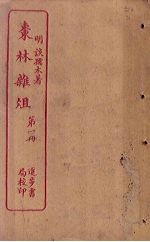 明 談孺木著
棗林雜俎
第一冊
進步書
局校印